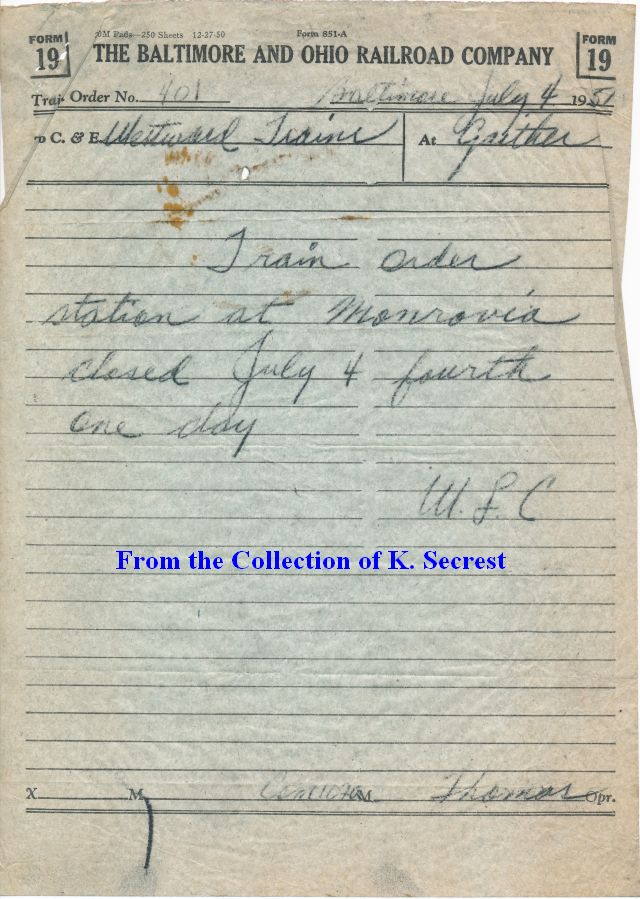 FORM 19
0M Pads—250 Sheets 12-27-50 Form 851-A
FORM 19
THE BALTIMORE AND OHIO RAILROAD COMPANY
Train Order No. 401 Baltimore July 4 1951
To C. & E. Westward Trains At Gaither
Train order
station at Monrovia
closed July 4 fourth
one day
W. F. C
From the Collection of K. Secrest
X M Thomas Opr.